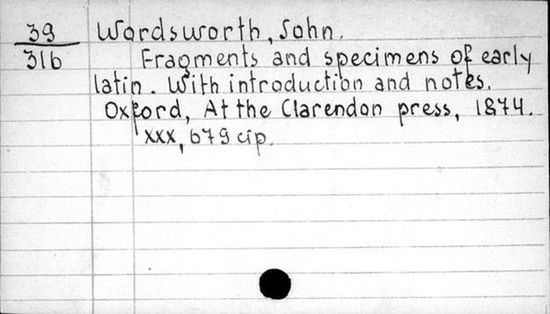 39 Wordsworth, John.
316 Fragments and specimens of early
latin. With introduction and notes.
Oxford, At the Clarendon press, 1874.
xxx, 679 cip.